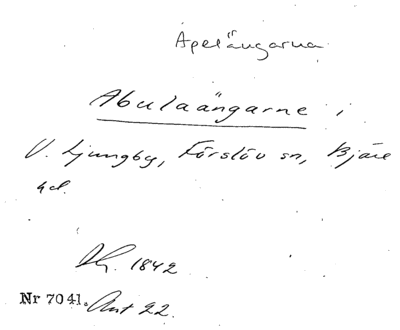 Apelängarna
Abulaängarne i
V. Ljungby, Förslöv sn, Bjäre
hd.
1842
Nr 7041. Akt 22.